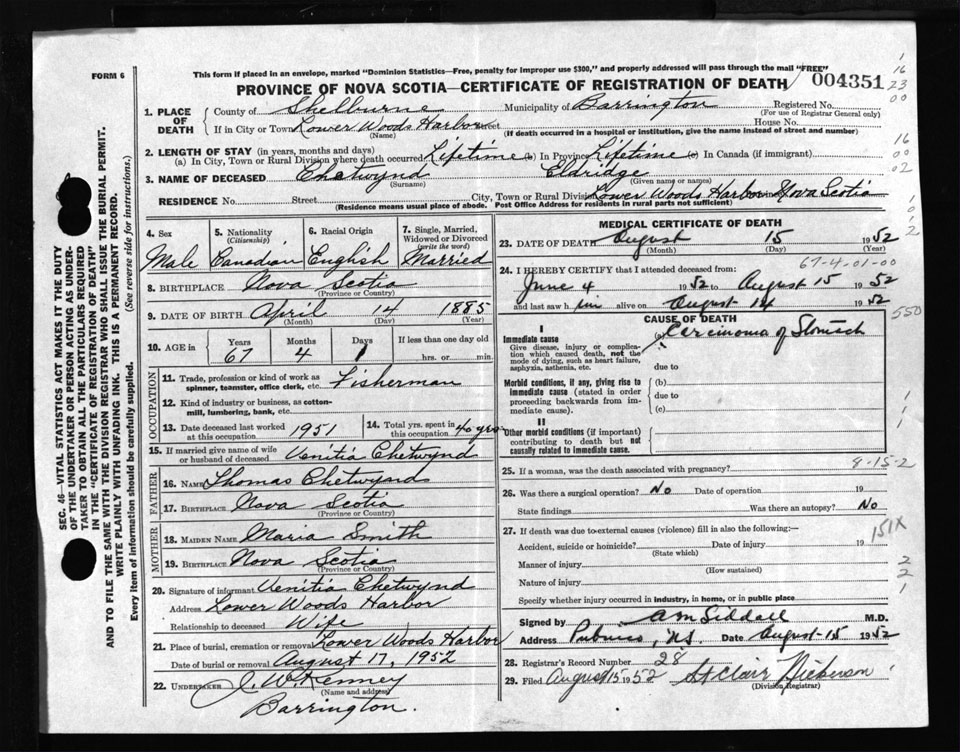 FORM 6
This form if placed in an envelope, marked "Dominion Statistics—Free, penalty for improper use $300," and properly addressed will pass through the mail "FREE"
PROVINCE OF NOVA SCOTIA—CERTIFICATE OF REGISTRATION OF DEATH
004351
1
16
23
00
1. PLACE OF DEATH
County of Shelburne Municipality of Barrington Registered No.
(For use of Registrar General only)
If in City or Town Lower Woods Harbor Street House No.
(Name) (If death occurred in a hospital or institution, give the name instead of street and number)
2. LENGTH OF STAY (in years, months and days)
(a) In City, Town or Rural Division where death occurred Lifetime (b) In Province Lifetime (c) In Canada (if immigrant)
16
00
02
3. NAME OF DECEASED Chetwynd Eldridge
(Surname) (Given name or names)
RESIDENCE No. Street City, Town or Rural Division Lower Woods Harbor Nova Scotia
(Residence means usual place of abode. Post Office Address for residents in rural parts not sufficient)
SEC. 46—VITAL STATISTICS ACT MAKES IT THE DUTY
OF THE UNDERTAKER OR PERSON ACTING AS UNDER-
TAKER TO OBTAIN ALL THE PARTICULARS REQUIRED
IN THE "CERTIFICATE OF REGISTRATION OF DEATH"
AND TO FILE THE SAME WITH THE DIVISION REGISTRAR WHO SHALL ISSUE THE BURIAL PERMIT.
WRITE PLAINLY WITH UNFADING INK. THIS IS A PERMANENT RECORD.
Every item of information should be carefully supplied. (See reverse side for instructions.)
4. Sex
Male
5. Nationality
(Citizenship)
Canadian
6. Racial Origin
English
7. Single, Married, Widowed or Divorced
(write the word)
Married
8. BIRTHPLACE Nova Scotia
(Province or Country)
9. DATE OF BIRTH April 14 1885
(Month) (Day) (Year)
10. AGE in Years Months Days If less than one day old
67 4 1 hrs. or min.
OCCUPATION
11. Trade, profession or kind of work as Fisherman
spinner, teamster, office clerk, etc.
12. Kind of industry or business, as cotton-
mill, lumbering, bank, etc.
13. Date deceased last worked at this occupation 1951
14. Total yrs. spent in this occupation 40 yrs
15. If married give name of wife or husband of deceased Venitia Chetwynd
FATHER
16. NAME Thomas Chetwynd
17. BIRTHPLACE Nova Scotia
(Province or Country)
MOTHER
18. MAIDEN NAME Maria Smith
19. BIRTHPLACE Nova Scotia
(Province or Country)
20. Signature of informant Venitia Chetwynd
Address Lower Woods Harbor
Relationship to deceased Wife
21. Place of burial, cremation or removal Lower Woods Harbor
Date of burial or removal August 17, 1952
22. UNDERTAKER J. W. Kenney
(Name and address)
Barrington.
MEDICAL CERTIFICATE OF DEATH
23. DATE OF DEATH August 15 1952
(Month) (Day) (Year)
67-4-01-00
24. I HEREBY CERTIFY that I attended deceased from:
June 4 1952 to August 15 1952
and last saw him alive on August 14 1952
550
CAUSE OF DEATH
I
Immediate cause
Give disease, injury or complica-
tion which caused death, not the
mode of dying, such as heart failure,
asphyxia, asthenia, etc.
(a) Carcinoma of Stomach
due to
Morbid conditions, if any, giving rise to
immediate cause (stated in order
proceeding backwards from im-
mediate cause).
(b)
due to
(c)
II
Other morbid conditions (if important)
contributing to death but not
causally related to immediate cause.
25. If a woman, was the death associated with pregnancy?
8-15-2
26. Was there a surgical operation? No Date of operation 19
State findings Was there an autopsy? No
27. If death was due to external causes (violence) fill in also the following:—
151X
Accident, suicide or homicide? Date of injury 19
(State which)
Manner of injury
(How sustained)
Nature of injury
Specify whether injury occurred in industry, in home, or in public place
2
2
1
Signed by A M Siddall M.D.
Address Pubnico, N.S. Date August-15 1952
28. Registrar's Record Number 28
29. Filed August 15 1952 St Clair Nickerson
(Division Registrar)